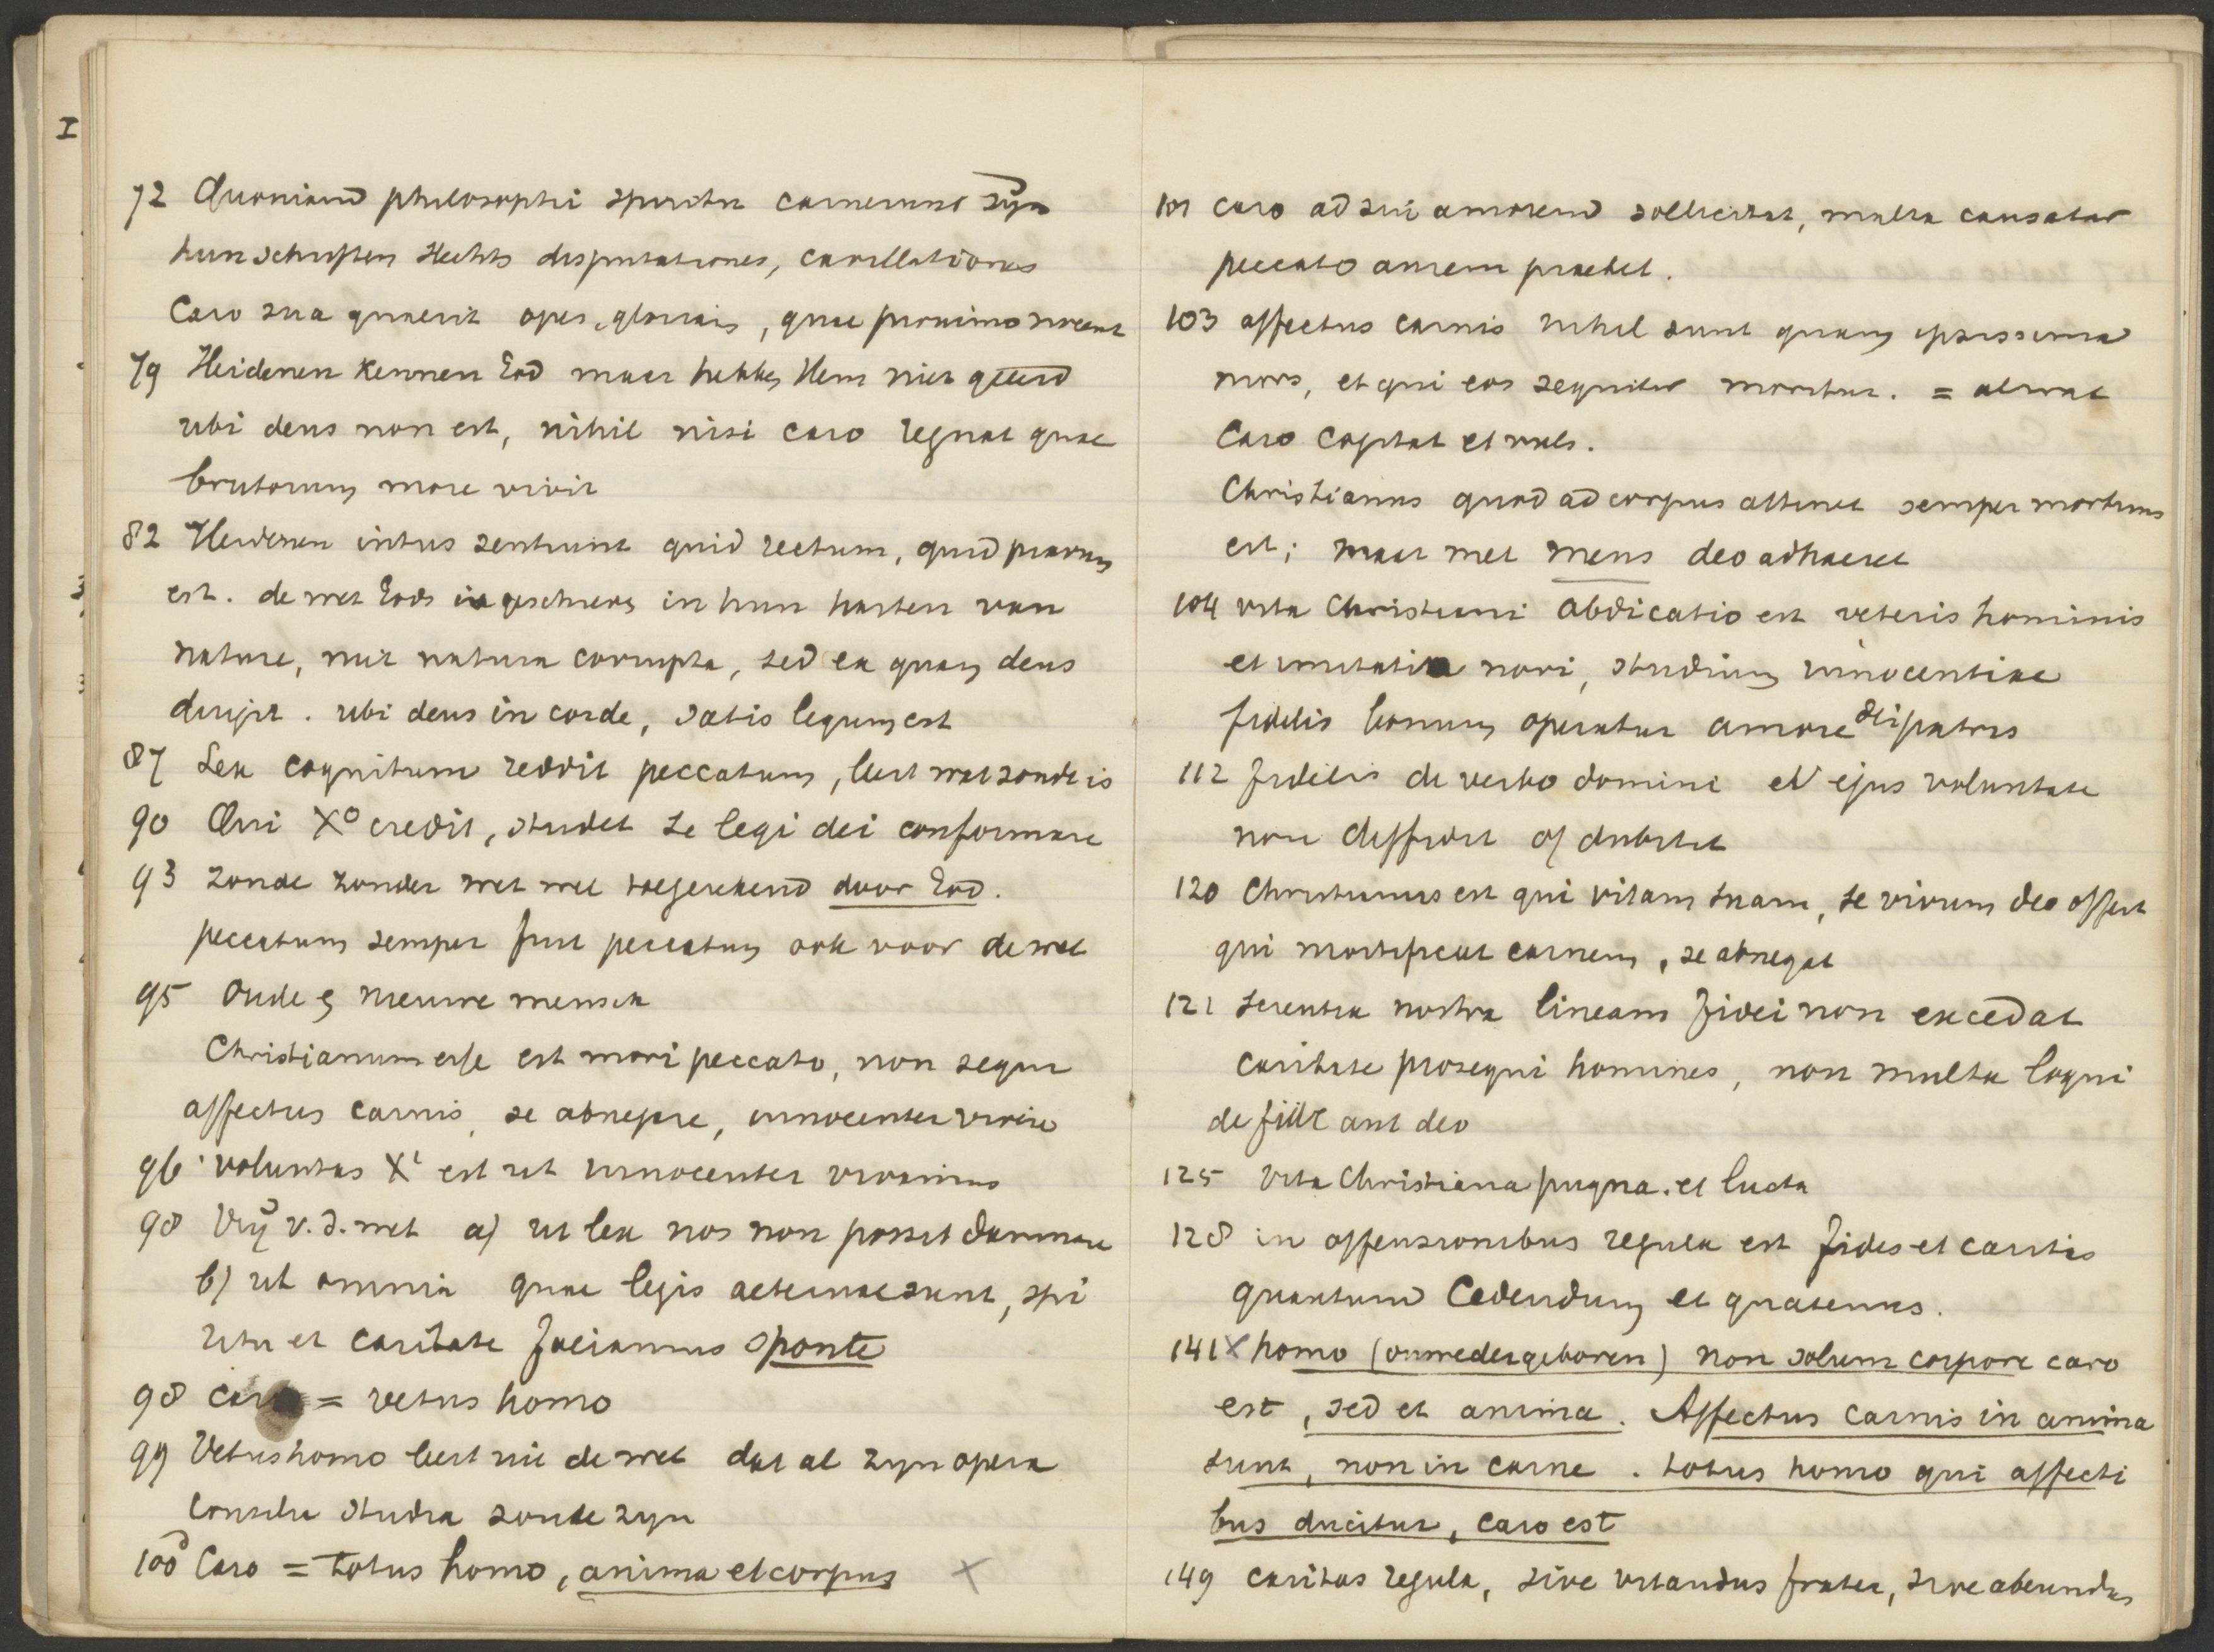 I
72 Quoniam philosophi spiritu caruerunt zyn
hun schriften slechts disputationes, cavillationes
Caro sua quaerit opes, gloriam, quae proximo nocent
79 Heidenen kennen God maar hebben Hem niet geëerd
ubi deus non est, nihil nisi caro regnat quae
brutorum more vivit
82 Heidenen intus sentiunt quid rectum, quid pravum
est. de wet Gods in geschreven in hun harten van
nature, niet natura corrupta, sed ea quam deus
dirigit. ubi deus in corde, satis legum est
87 Lex cognitum reddit peccatum, leert wat zonde is
90 Qui X° credit, studet se legi dei conformare
93 zonde zonder wet wel toegerekend door God.
peccatum semper fuit peccatum ook voor de wet
95 Oude en nieuwe mensch
Christianum esse est mori peccato, non sequi
affectus carnis, se abnegare, innocenter vivere
96 voluntas Xi est ut innocenter vivamus
98 Vrij v. d. wet a) ut lex nos non possit damnare
b) ut omnia quae legis aeternae sunt, spi
ritu et caritate faciamus sponte
98 caro = vetus homo
99 Vetus homo leert uit de wet dat al zyn opera
consilia studia zonde zyn
100 Caro = totus homo, anima et corpus X
101 caro ad sui amorem sollicitat, multa causatur
peccato aurem praebet.
103 affectus carnis nihil sunt quam ipsissima
mors, et qui eos sequitur moritur. = al wat
Caro cogitat et vult.
Christianus quod ad corpus attinet semper mortuus
est; maar met mens deo adhaeret
104 vita Christiani abdicatio est veteris hominis
et imitatio novi, studium innocentiae
fidelis bonum operatur amore dei patris
112 fidelis de verbo domini et ejus voluntate
non diffidit of dubitat
120 Christianus est qui vitam suam, se vivum deo offert
qui mortificat carnem, se abnegat
121 scientia nostra lineam fidei non excedat
caritate prosequi homines, non multa loqui
de fide aut deo
125 vita Christiana pugna et lucta
128 in offensionibus regula est fides et caritas
quantum cedendum et quatenus.
141 X homo (onwedergeboren) non solum corpore caro
est, sed et anima. Affectus carnis in anima
sunt, non in carne. totus homo qui affecti
bus ducitur, caro est
149 caritas regula, sive vitandus frater, sive